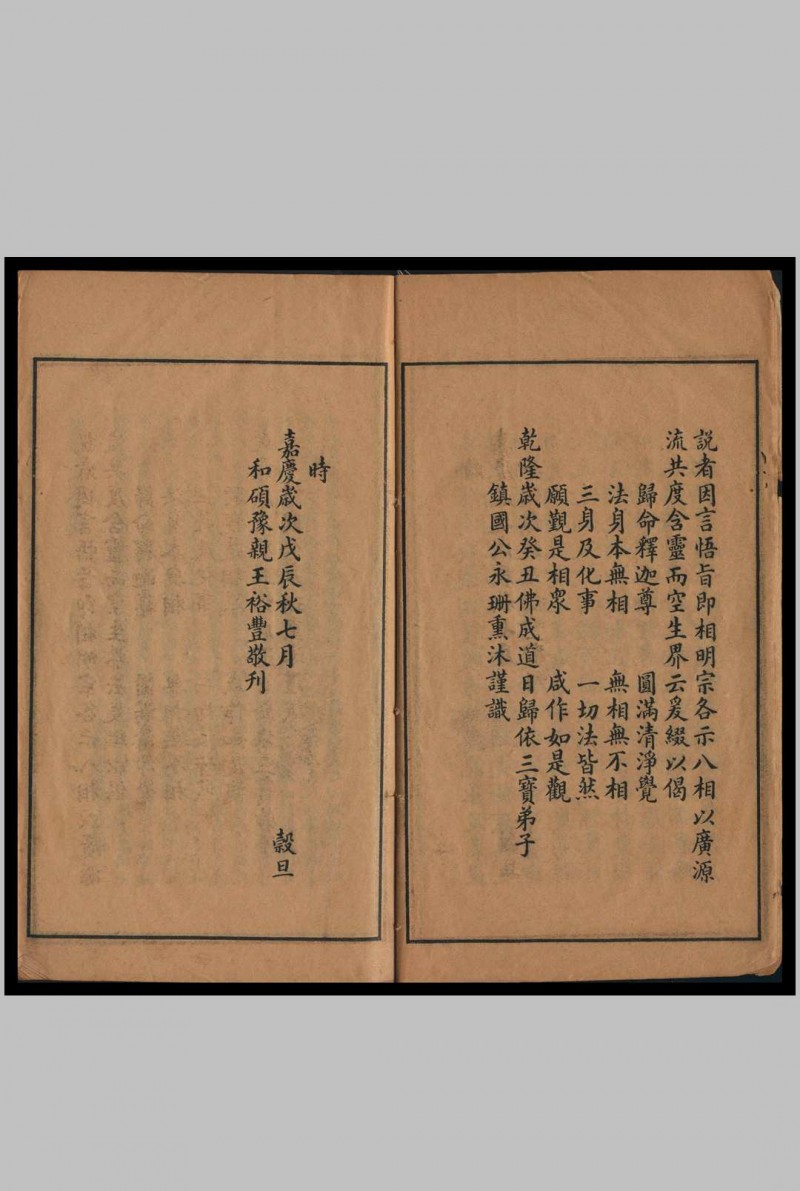 說者因言悟旨即相明宗各示八相以廣源
流共度含靈而空生界云爰綴以偈
歸命釋迦尊　圓滿清淨覺
法身本無相　無相無不相
三身及化事　一切法皆然
願觀是相眾　咸作如是觀
乾隆歲次癸丑佛成道日歸依三寶弟子
鎮國公永珊熏沐謹識
時
嘉慶歲次戊辰秋七月　穀旦
和碩豫親王裕豐敬刊